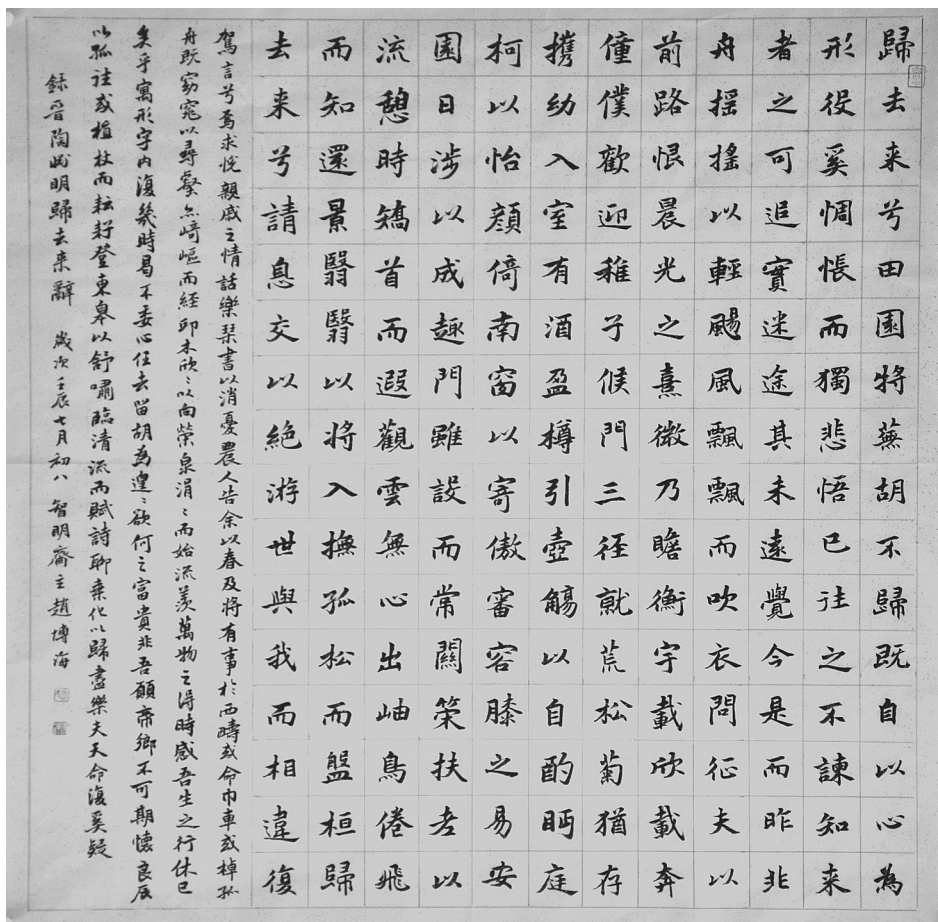 歸去来兮田園将蕪胡不歸既自以心為
形役奚惆悵而獨悲悟已往之不諫知来
者之可追實迷途其未遠覺今是而昨非
舟摇摇以輕颺風飄飄而吹衣問征夫以
前路恨晨光之熹微乃瞻衡宇載欣載奔
僮僕歡迎稚子候門三徑就荒松菊猶存
携幼入室有酒盈樽引壺觴以自酌眄庭
柯以怡顏倚南窗以寄傲審容膝之易安
園日涉以成趣門雖設而常關策扶老以
流憩時矯首而遐觀雲無心出岫鳥倦飛
而知還景翳翳以将入撫孤松而盤桓歸
去来兮請息交以絕游世與我而相違復
駕言兮焉求悅親戚之情話樂琴書以消憂農人告余以春及将有事於西疇或命巾車或棹孤
舟既窈窕以尋壑亦崎嶇而經邱木欣〻以向榮泉涓〻而始流羨萬物之得時感吾生之行休已
矣乎寓形宇内復幾時曷不委心任去留胡為遑〻欲何之富貴非吾願帝鄉不可期懷良辰
以孤往或植杖而耘耔登東皋以舒嘯臨清流而賦詩聊乘化以歸盡樂夫天命復奚疑
錄晉陶淵明歸去来辭 歲次壬辰七月初八 智明齋主趙博海